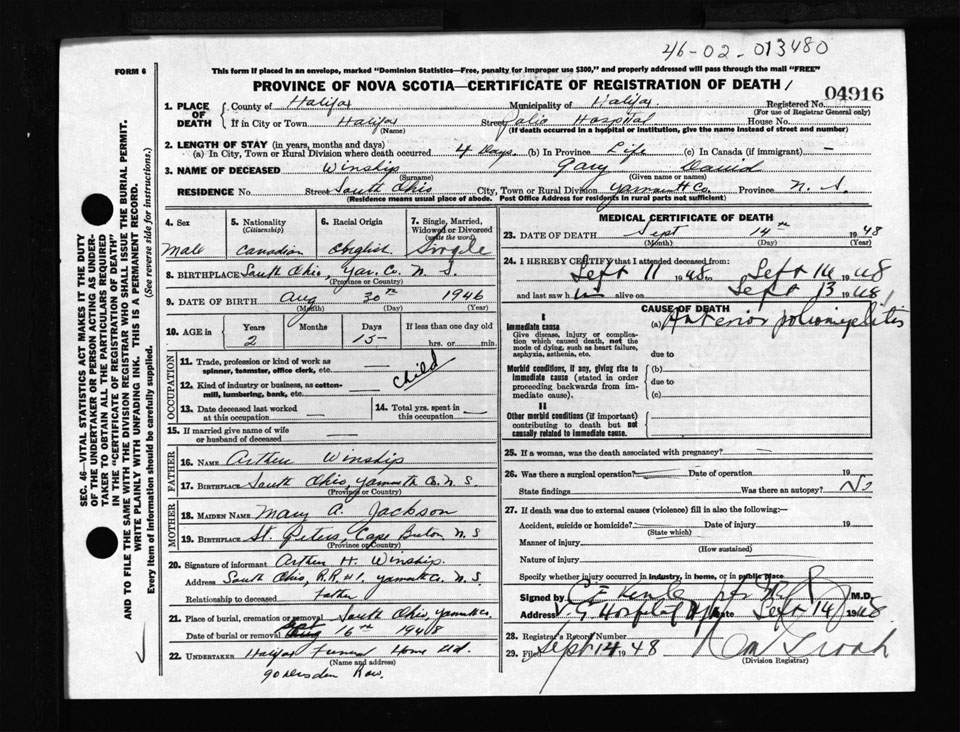 46-02-013480
FORM 6
This form if placed in an envelope, marked "Dominion Statistics—Free, penalty for improper use $300," and properly addressed will pass through the mail "FREE"
PROVINCE OF NOVA SCOTIA—CERTIFICATE OF REGISTRATION OF DEATH/
04916
1. PLACE OF DEATH { County of Halifax Municipality of Halifax Registered No.
(For use of Registrar General only)
If in City or Town Halifax Street Polio Hospital House No.
(Name) (If death occurred in a hospital or institution, give the name instead of street and number)
2. LENGTH OF STAY (in years, months and days)
(a) In City, Town or Rural Division where death occurred 4 Days. (b) In Province Life (c) In Canada (if immigrant) —
3. NAME OF DECEASED Winship Gary David
(Surname) (Given name or names)
RESIDENCE No. Street South Ohio City, Town or Rural Division Yarmouth Co. Province N. S.
(Residence means usual place of abode. Post Office Address for residents in rural parts not sufficient)
4. Sex
Male
5. Nationality
(Citizenship)
Canadian
6. Racial Origin
English
7. Single, Married,
Widowed or Divorced
(write the word)
Single
8. BIRTHPLACE South Ohio, Yar. Co. N. S.
(Province or Country)
9. DATE OF BIRTH Aug 30th 1946
(Month) (Day) (Year)
10. AGE in Years Months Days If less than one day old
2 15 hrs. or min.
OCCUPATION
11. Trade, profession or kind of work as
spinner, teamster, office clerk, etc. —
12. Kind of industry or business, as cotton-
mill, lumbering, bank, etc. Child
13. Date deceased last worked
at this occupation —
14. Total yrs. spent in
this occupation —
15. If married give name of wife
or husband of deceased —
FATHER
16. NAME Arthur Winship
17. BIRTHPLACE South Ohio, Yarmouth Co. N. S.
(Province or Country)
MOTHER
18. MAIDEN NAME Mary A. Jackson
19. BIRTHPLACE St. Peters, Cape Breton N. S
(Province or Country)
20. Signature of informant Arthur H. Winship.
Address South Ohio, R.R. #1, Yarmouth Co. N. S.
Relationship to deceased Father
21. Place of burial, cremation or removal South Ohio, Yarmouth Co.
Date of burial or removal Sept 16th 1948
22. UNDERTAKER Halifax Funeral Home Ltd.
(Name and address)
90 Dresden Row.
MEDICAL CERTIFICATE OF DEATH
23. DATE OF DEATH Sept 14th 1948
(Month) (Day) (Year)
24. I HEREBY CERTIFY that I attended deceased from:
Sept 11 1948 to Sept 14 1948
and last saw him alive on Sept 13 1948
CAUSE OF DEATH
I
Immediate cause (a) Anterior poliomyelitis
Give disease, injury or complica-
tion which caused death, not the
mode of dying, such as heart failure,
asphyxia, asthenia, etc.
due to
Morbid conditions, if any, giving rise to
immediate cause (stated in order
proceeding backwards from im-
mediate cause).
(b)
due to
(c)
II
Other morbid conditions (if important)
contributing to death but not
causally related to immediate cause.
25. If a woman, was the death associated with pregnancy? —
26. Was there a surgical operation? Date of operation 19
State findings Was there an autopsy? No
27. If death was due to external causes (violence) fill in also the following:—
Accident, suicide or homicide? Date of injury 19
(State which)
Manner of injury
(How sustained)
Nature of injury
Specify whether injury occurred in industry, in home, or in public place
Signed by M.D.
Address V. G Hospital Date Sept 14 1948
28. Registrar's Record Number
29. Filed Sept 14 1948
(Division Registrar)
SEC. 46—VITAL STATISTICS ACT MAKES IT THE DUTY
OF THE UNDERTAKER OR PERSON ACTING AS UNDER-
TAKER TO OBTAIN ALL THE PARTICULARS REQUIRED
IN THE "CERTIFICATE OF REGISTRATION OF DEATH"
AND TO FILE THE SAME WITH THE DIVISION REGISTRAR WHO SHALL ISSUE THE BURIAL PERMIT.
WRITE PLAINLY WITH UNFADING INK. THIS IS A PERMANENT RECORD.
Every item of information should be carefully supplied. (See reverse side for instructions.)